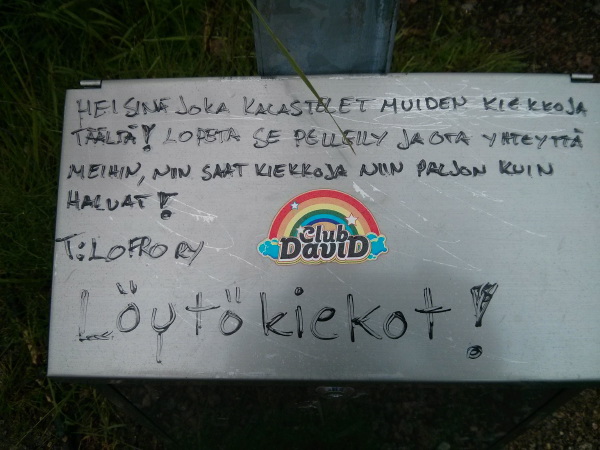 HEI SINÄ JOKA KALASTELET MUIDEN KIEKKOJA
TÄÄLTÄ! LOPETA SE PELLEILY JA OTA YHTEYTTÄ
MEIHIN, NIIN SAAT KIEKKOJA NIIN PALJON KUIN
HALUAT!
T: LOFRO RY
Club
DaviD
Löytökiekot!